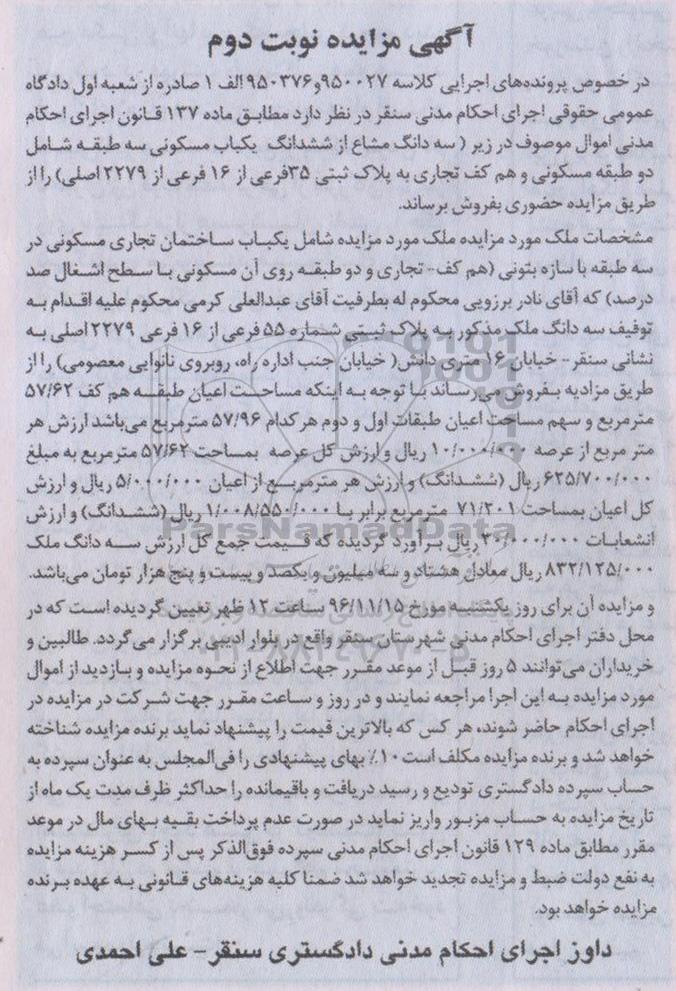 آگهی مزایده نوبت دوم
در خصوص پرونده‌های اجرایی کلاسه ۹۵۰۰۲۷و۹۵۰۳۷۶ الف ۱ صادره از شعبه اول دادگاه
عمومی حقوقی اجرای احکام مدنی سنقر در نظر دارد مطابق ماده ۱۳۷ قانون اجرای احکام
مدنی اموال موصوف در زیر ( سه دانگ مشاع از ششدانگ یکباب مسکونی سه طبقه شامل
دو طبقه مسکونی و هم کف تجاری به پلاک ثبتی ۳۵فرعی از ۱۶ فرعی از ۲۲۷۹ اصلی) را از
طریق مزایده حضوری بفروش برساند.
مشخصات ملک مورد مزایده ملک مورد مزایده شامل یکباب ساختمان تجاری مسکونی در
سه طبقه با سازه بتونی (هم کف- تجاری و دو طبقه روی آن مسکونی با سطح اشغال صد
درصد) که آقای نادر برزویی محکوم له بطرفیت آقای عبدالعلی کرمی محکوم علیه اقدام به
توقیف سه دانگ ملک مذکور به پلاک ثبتی شماره ۵۵ فرعی از ۱۶ فرعی ۲۲۷۹ اصلی به
نشانی سنقر - خیابان ۱۶ متری دانش( خیابان جنب اداره راه، روبروی نانوایی معصومی) را از
طریق مزادیه بفروش می‌رساند با توجه به اینکه مساحت اعیان طبقه هم کف ۵۷/۶۲
مترمربع و سهم مساحت اعیان طبقات اول و دوم هر کدام ۵۷/۹۶ مترمربع می‌باشد ارزش هر
متر مربع از عرصه ۱۰/۰۰۰/۰۰۰ ریال و ارزش کل عرصه بمساحت ۵۷/۶۲ مترمربع به مبلغ
۶۲۵/۷۰۰/۰۰۰ ریال (ششدانگ) و ارزش هر مترمربع از اعیان ۵/۰۰۰/۰۰۰ ریال و ارزش
کل اعیان بمساحت ۷۱/۲۰۱ مترمربع برابر با ۱/۰۰۸/۵۵۰/۰۰۰ ریال (ششدانگ) و ارزش
انشعابات ۳۰/۰۰۰/۰۰۰ ریال برآورد گردیده که قیمت جمع کل ارزش سه دانگ ملک
۸۳۲/۱۲۵/۰۰۰ ریال معادل هشتاد و سه میلیون و یکصد و بیست و پنج هزار تومان می‌باشد.
و مزایده آن برای روز یکشنبه مورخ ۹۶/۱۱/۱۵ ساعت ۱۲ ظهر تعیین گردیده است که در
محل دفتر اجرای احکام مدنی شهرستان سنقر واقع در بلوار ادیبی برگزار می‌گردد. طالبین و
خریداران می‌توانند ۵ روز قبل از موعد مقرر جهت اطلاع از نحوه مزایده و بازدید از اموال
مورد مزایده به این اجرا مراجعه نمایند و در روز و ساعت مقرر جهت شرکت در مزایده در
اجرای احکام حاضر شوند، هر کس که بالاترین قیمت را پیشنهاد نماید برنده مزایده شناخته
خواهد شد و برنده مزایده مکلف است ۱۰٪ بهای پیشنهادی را فی‌المجلس به عنوان سپرده به
حساب سپرده دادگستری تودیع و رسید دریافت و باقیمانده را حداکثر ظرف مدت یک ماه از
تاریخ مزایده به حساب مزبور واریز نماید در صورت عدم پرداخت بقیه بهای مال در موعد
مقرر مطابق ماده ۱۲۹ قانون اجرای احکام مدنی سپرده فوق‌الذکر پس از کسر هزینه مزایده
به نفع دولت ضبط و مزایده تجدید خواهد شد ضمنا کلیه هزینه‌های قانونی به عهده برنده
مزایده خواهد بود.
داورز اجرای احکام مدنی دادگستری سنقر - علی احمدی
ParsNamadData